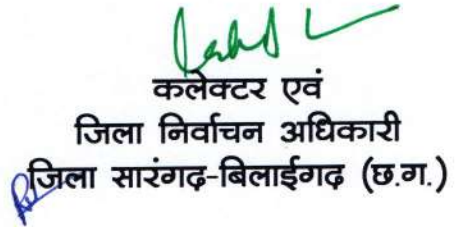 कलेक्टर एवं
जिला निर्वाचन अधिकारी
जिला सारंगढ़-बिलाईगढ़ (छ.ग.)